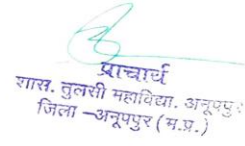 प्राचार्य
शास. तुलसी महाविद्या. अनूपपुर
जिला –अनूपपुर (म.प्र.)